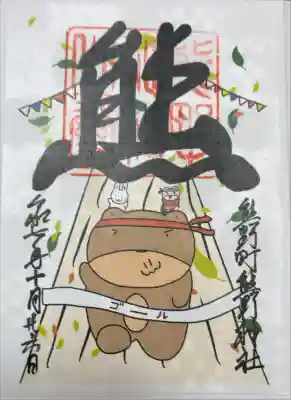 熊
熊野町熊野神社
ゴール
令和 年十月廿六日